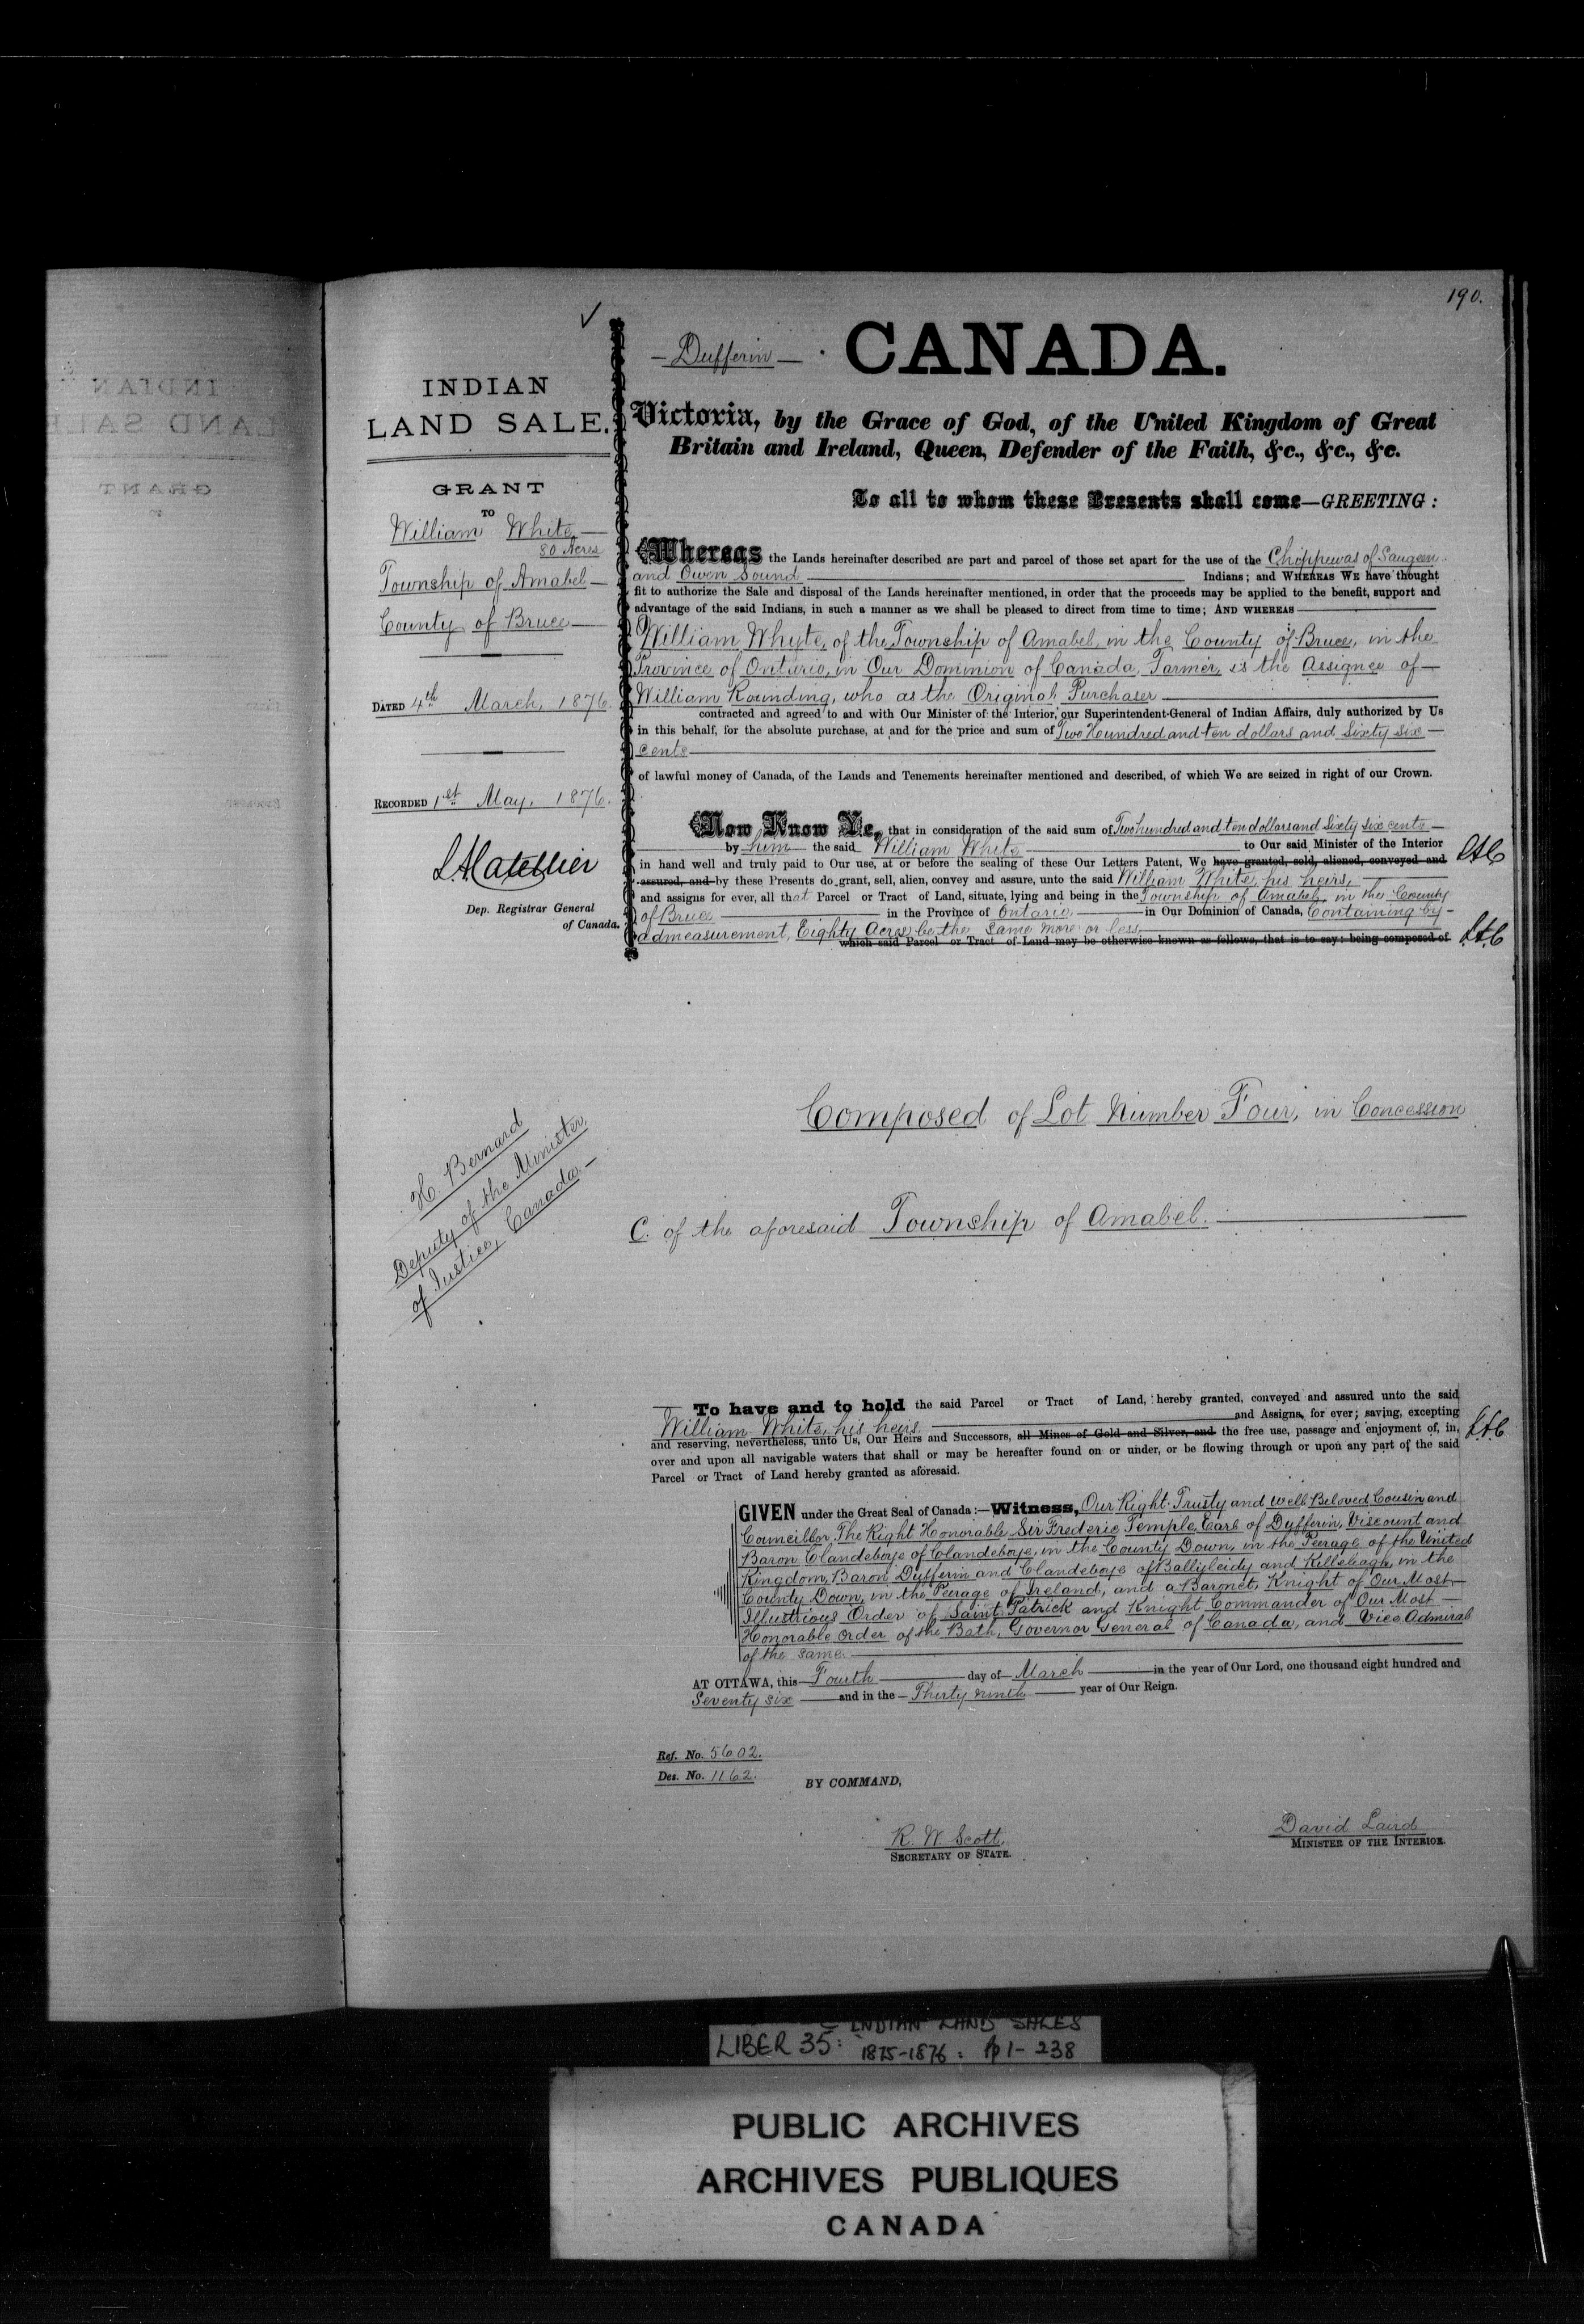 190.
✓
INDIAN
LAND SALE.
GRANT
TO
William White
80 Acres
Township of Amabel
County of Bruce
DATED 4th March, 1876.
RECORDED 1st May, 1876.
Dep. Registrar General
of Canada.
H. Bernard
Deputy of the Minister
of Justice, Canada.
Dufferin
CANADA.
Victoria, by the Grace of God, of the United Kingdom of Great
Britain and Ireland, Queen, Defender of the Faith, &c., &c., &c.
To all to whom these Presents shall come—GREETING:
Whereas the Lands hereinafter described are part and parcel of those set apart for the use of the Chippewas of Saugeen
and Owen Sound Indians; and WHEREAS WE have thought
fit to authorize the Sale and disposal of the Lands hereinafter mentioned, in order that the proceeds may be applied to the benefit, support and
advantage of the said Indians, in such a manner as we shall be pleased to direct from time to time; AND WHEREAS
William Whyte, of the Township of Amabel, in the County of Bruce, in the
Province of Ontario, in Our Dominion of Canada, Farmer, is the Assignee of
William Rounding, who as the Original Purchaser
contracted and agreed to and with Our Minister of the Interior, our Superintendent-General of Indian Affairs, duly authorized by Us
in this behalf, for the absolute purchase, at and for the price and sum of Two Houndred and ten dollars and Sixty Six
Cents
of lawful money of Canada, of the Lands and Tenements hereinafter mentioned and described, of which We are seized in right of our Crown.
Now Know Ye, that in consideration of the said sum of Two hundred and ten dollars and Sixty Six cents
by him the said William White to Our said Minister of the Interior
in hand well and truly paid to Our use, at or before the sealing of these Our Letters Patent, We have granted, sold, aliened, conveyed and
assured, and by these Presents do grant, sell, alien, convey and assure, unto the said William White, his heirs,
and assigns for ever, all that Parcel or Tract of Land, situate, lying and being in the Township of Amabel, in the County
of Bruce in the Province of Ontario in Our Dominion of Canada, Containing by
admeasurement, Eighty Acres be the same more or less
which said Parcel or Tract of Land may be otherwise known as follows, that is to say: being composed of
Composed of Lot Number Four, in Concession
C. of the aforesaid Township of Amabel.
To have and to hold the said Parcel or Tract of Land, hereby granted, conveyed and assured unto the said
William White, his heirs and Assigns, for ever; saving, excepting
and reserving, nevertheless, unto Us, Our Heirs and Successors, all Mines of Gold and Silver, and the free use, passage and enjoyment of, in,
over and upon all navigable waters that shall or may be hereafter found on or under, or be flowing through or upon any part of the said
Parcel or Tract of Land hereby granted as aforesaid.
GIVEN under the Great Seal of Canada:—Witness, Our Right Trusty and well Beloved Cousin and
Councillor The Right Honorable Sir Frederic Temple, Earl of Dufferin, Viscount and
Baron Clandeboye of Clandeboye, in the County Down, in the Peerage of the United
Kingdom, Baron Dufferin and Clandeboye of Ballyleidy and Killeleagh, in the
County Down, in the Peerage of Ireland, and a Baronet, Knight of Our Most
Illustrious Order of Saint Patrick and Knight Commander of Our Most
Honorable Order of the Bath, Governor General of Canada, and Vice Admiral
of the same
AT OTTAWA, this Fourth day of March in the year of Our Lord, one thousand eight hundred and
Seventy six and in the Thirty ninth year of Our Reign.
Ref. No. 5602.
Des. No. 1162.
BY COMMAND,
R. W. Scott
SECRETARY OF STATE.
David Laird
MINISTER OF THE INTERIOR.
LIBER 35: INDIAN LAND SALES
1875-1876: pp 1-238
PUBLIC ARCHIVES
ARCHIVES PUBLIQUES
CANADA